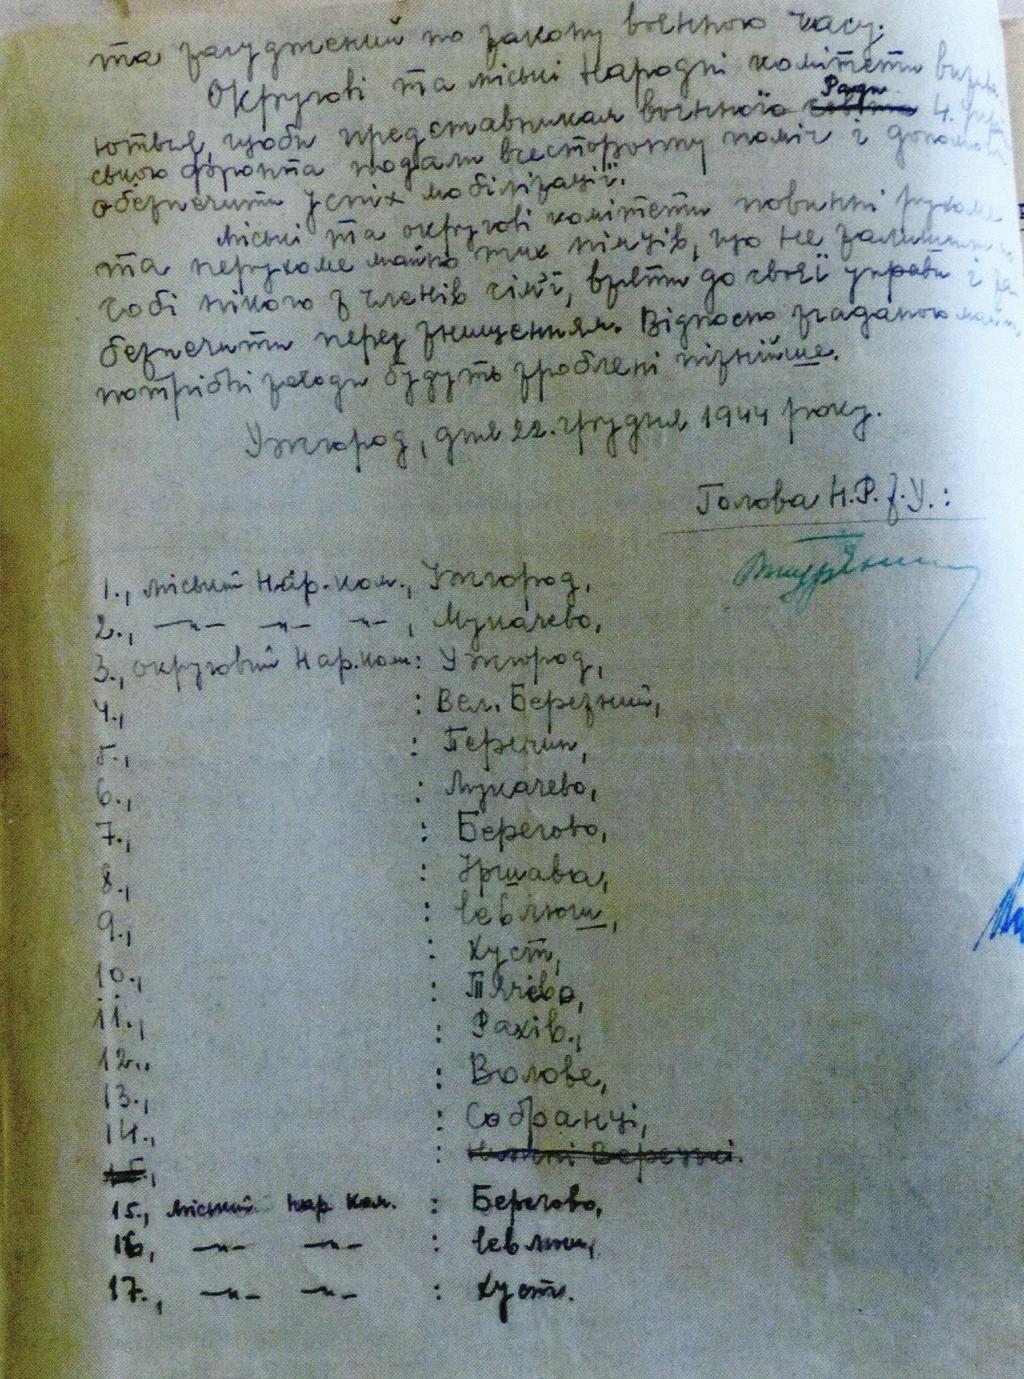 та засуджений по закону воєнного часу.
Округові та міські Народні комітети
ються, щоби представникам воєнної Ради 4.
фронта подали всесторонну поміч і
обезпечити успіх мобілізації.
Міські та округові комітети повинні рухоме
та нерухоме майно тих німців, що не
собі нікого з членів сімї, взяти до своєї управи і за
безпечити перед знищенням. Відносно згаданого
потрібні заходи будуть зроблені пізнійше.
Ужгород, дня 22. грудня 1944 року.
Голова Н.Р.З.У.:
1., міський Нар. ком., Ужгород,
2., —"— —"— —"—, Мукачево,
3., округовий Нар. ком: Ужгород,
4., : Вел. Березний,
5., : Перечин,
6., : Мукачево,
7., : Берегово,
8., : Іршава,
9., : Севлюш,
10., : Хуст,
11., : Тячево,
12., : Рахів.,
13., : Волове,
14., : Собранці,
15., : Нижні Верецкі.
15., міський нар ком. : Берегово,
16, —"— —"— : Севлюш,
17., —"— —"— : Хуст.